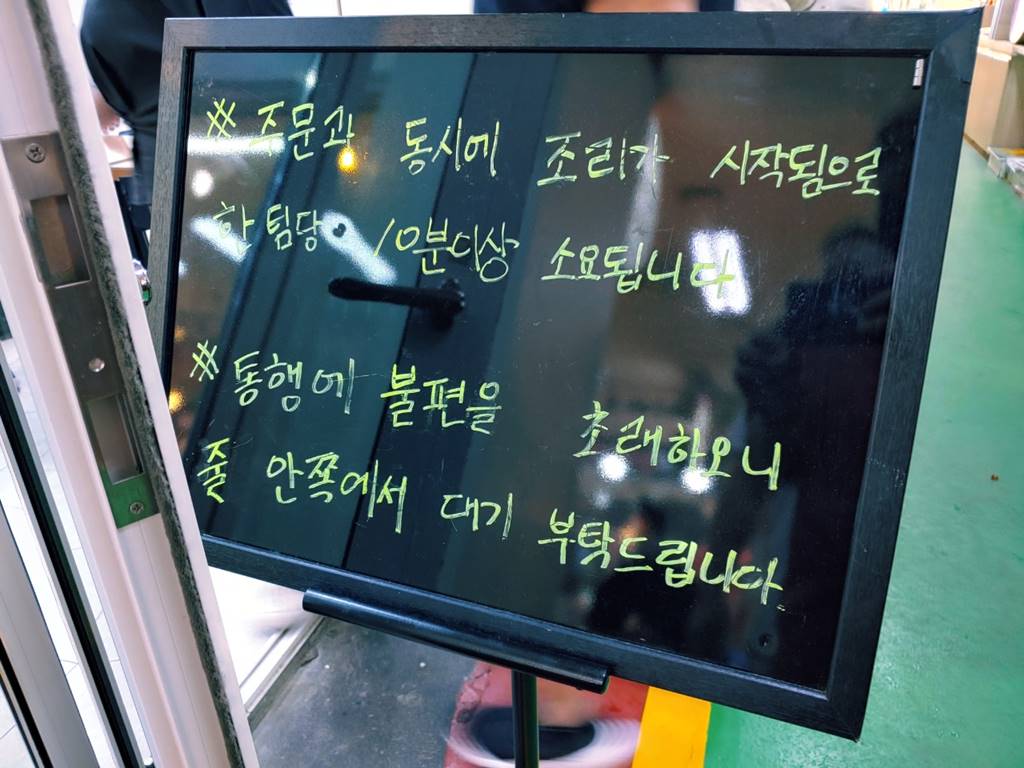 ※ 주문과 동시에 조리가 시작됨으로
한 팀당 10분이상 소요됩니다
※ 통행에 불편을 초래하오니
줄 안쪽에서 대기 부탁드립니다